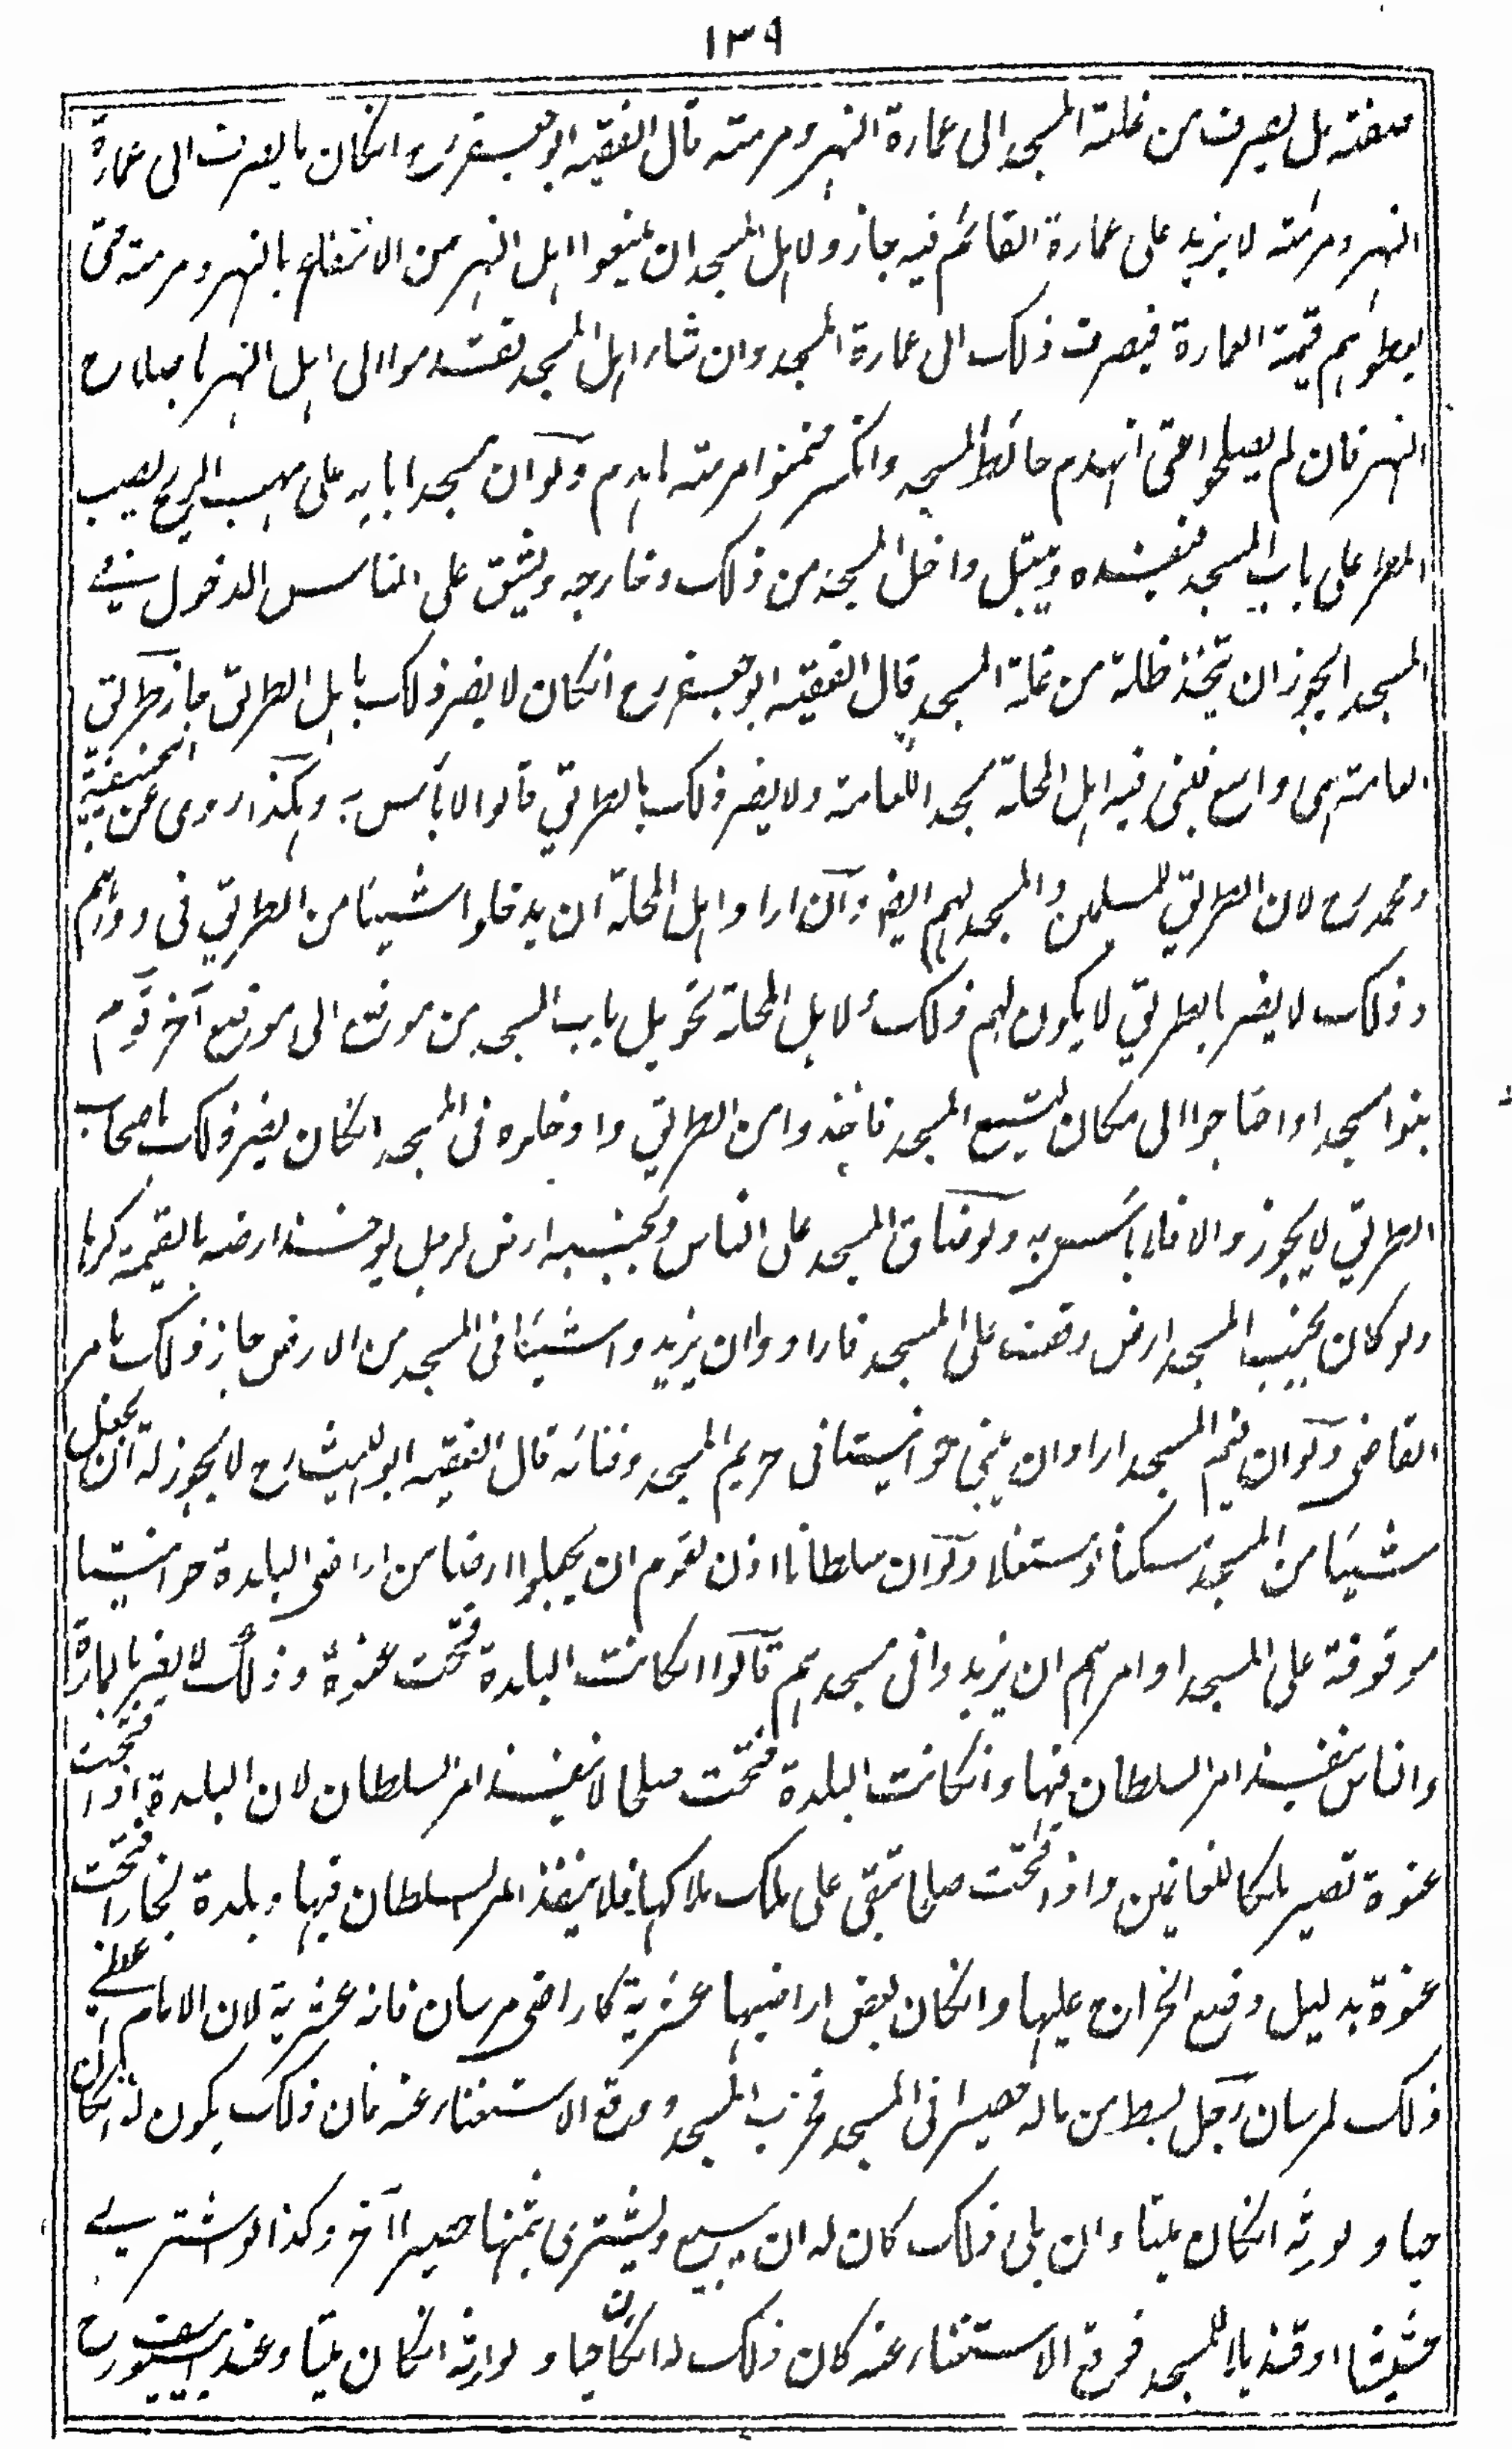 ١٣٩
صفته هل يصرف من غلة المسجد الى عمارة النهر ومرمته قال الفقيه ابو جعفر رح انكان ما يصرف الى عمارة
النهر ومرمته لا يزيد على عمارة القائم فيه جاز ولاهل المسجد ان يمنعوا اهل النهر من الانتفاع بالنهر ومرمته حتى
يعطوهم قيمة العمارة فيصرف ذلك الى عمارة المسجد وان شاء اهل المسجد تقدموا الى اهل النهر باصلاح
النهر فان لم يصلحوا حتى انهدم حائط المسجد وانكسر ضمنوا مرمته ما انهدم ولو ان مسجدا بابه على مهب الريح يصيب
المطر على باب المسجد فيفسده ويبتل داخل المسجد من ذلك وخارجه ويشق على الناس الدخول في
المسجد ايجوز ان يتخذ ظلة من غلة المسجد قال الفقيه ابو جعفر رح انكان لا يضر ذلك باهل الطريق جاز طريق
العامة هى واسع فبنى فيه اهل المحلة مسجدا للعامة ولا يضر ذلك بالطريق قالوا لا بأس به وهكذا روى عن ابيحنيفة
ومحمد رح لان الطريق للمسلمين والمسجد لهم ايضا وان ارادوا اهل المحلة ان يدخلوا شيئا من الطريق فى دورهم
وذلك لا يضر بالطريق لا يكون لهم ذلك ولاهل المحلة تحويل باب المسجد من موضع الى موضع آخر قوم
بنوا مسجدا واحتاجوا الى مكان ليتسع المسجد فاخذوا من الطريق وادخلوه فى المسجد انكان يضر ذلك باصحاب
الطريق لا يجوز والا فلا بأس به ولو ضاق المسجد على الناس وبجنبه ارض لرجل يوخذ ارضه بالقيمة كرها
ولو كان بجنب المسجد ارض وقف على المسجد فارادوا ان يزيدوا شيئا فى المسجد من الارض جاز ذلك بامر
القاضى ولو ان قيم المسجد اراد ان يبنى حوانيتا فى حريم المسجد وفنائه قال الفقيه ابو الليث رح لا يجوز له ان يجعل
شيئا من المسجد مسكنا ومستغلا ولو ان سلطانا اذن لقوم ان يجعلوا ارضا من اراضى البلدة حوانيتا
موقوفة على المسجد او امرهم ان يزيدوا فى مسجدهم قالوا انكانت البلدة فتحت عنوة وذلك لا يضر بالمارة
والناس ينفذ امر السلطان فيها وانكانت البلدة فتحت صلحا لا ينفذ امر السلطان لان البلدة اذا فتحت
عنوة تصير ملكا للغانمين واذا فتحت صلحا تبقى على ملك ملاكها فلا ينفذ امر السلطان فيها وبلدة بخارا فتحت
عنوة بدليل وضع الخراج عليها وانكان بعض اراضيها عشرية كاراضى مرسان فانه عشرية لان الامام اعطى
ذلك لمرسان رجل بسط من ماله حصيرا فى المسجد فخرب المسجد ووقع الاستغناء عنه فان ذلك يكون له انكان
حيا ولورثه انكان ميتا وان بلى ذلك كان له ان يبيع ويشترى بثمنها حصيرا آخر وكذا لو اشترى
حشيشا او قنديلا للمسجد فوقع الاستغناء عنه كان ذلك له انكان حيا ولوارثه انكان ميتا وعند ابيوسف رح